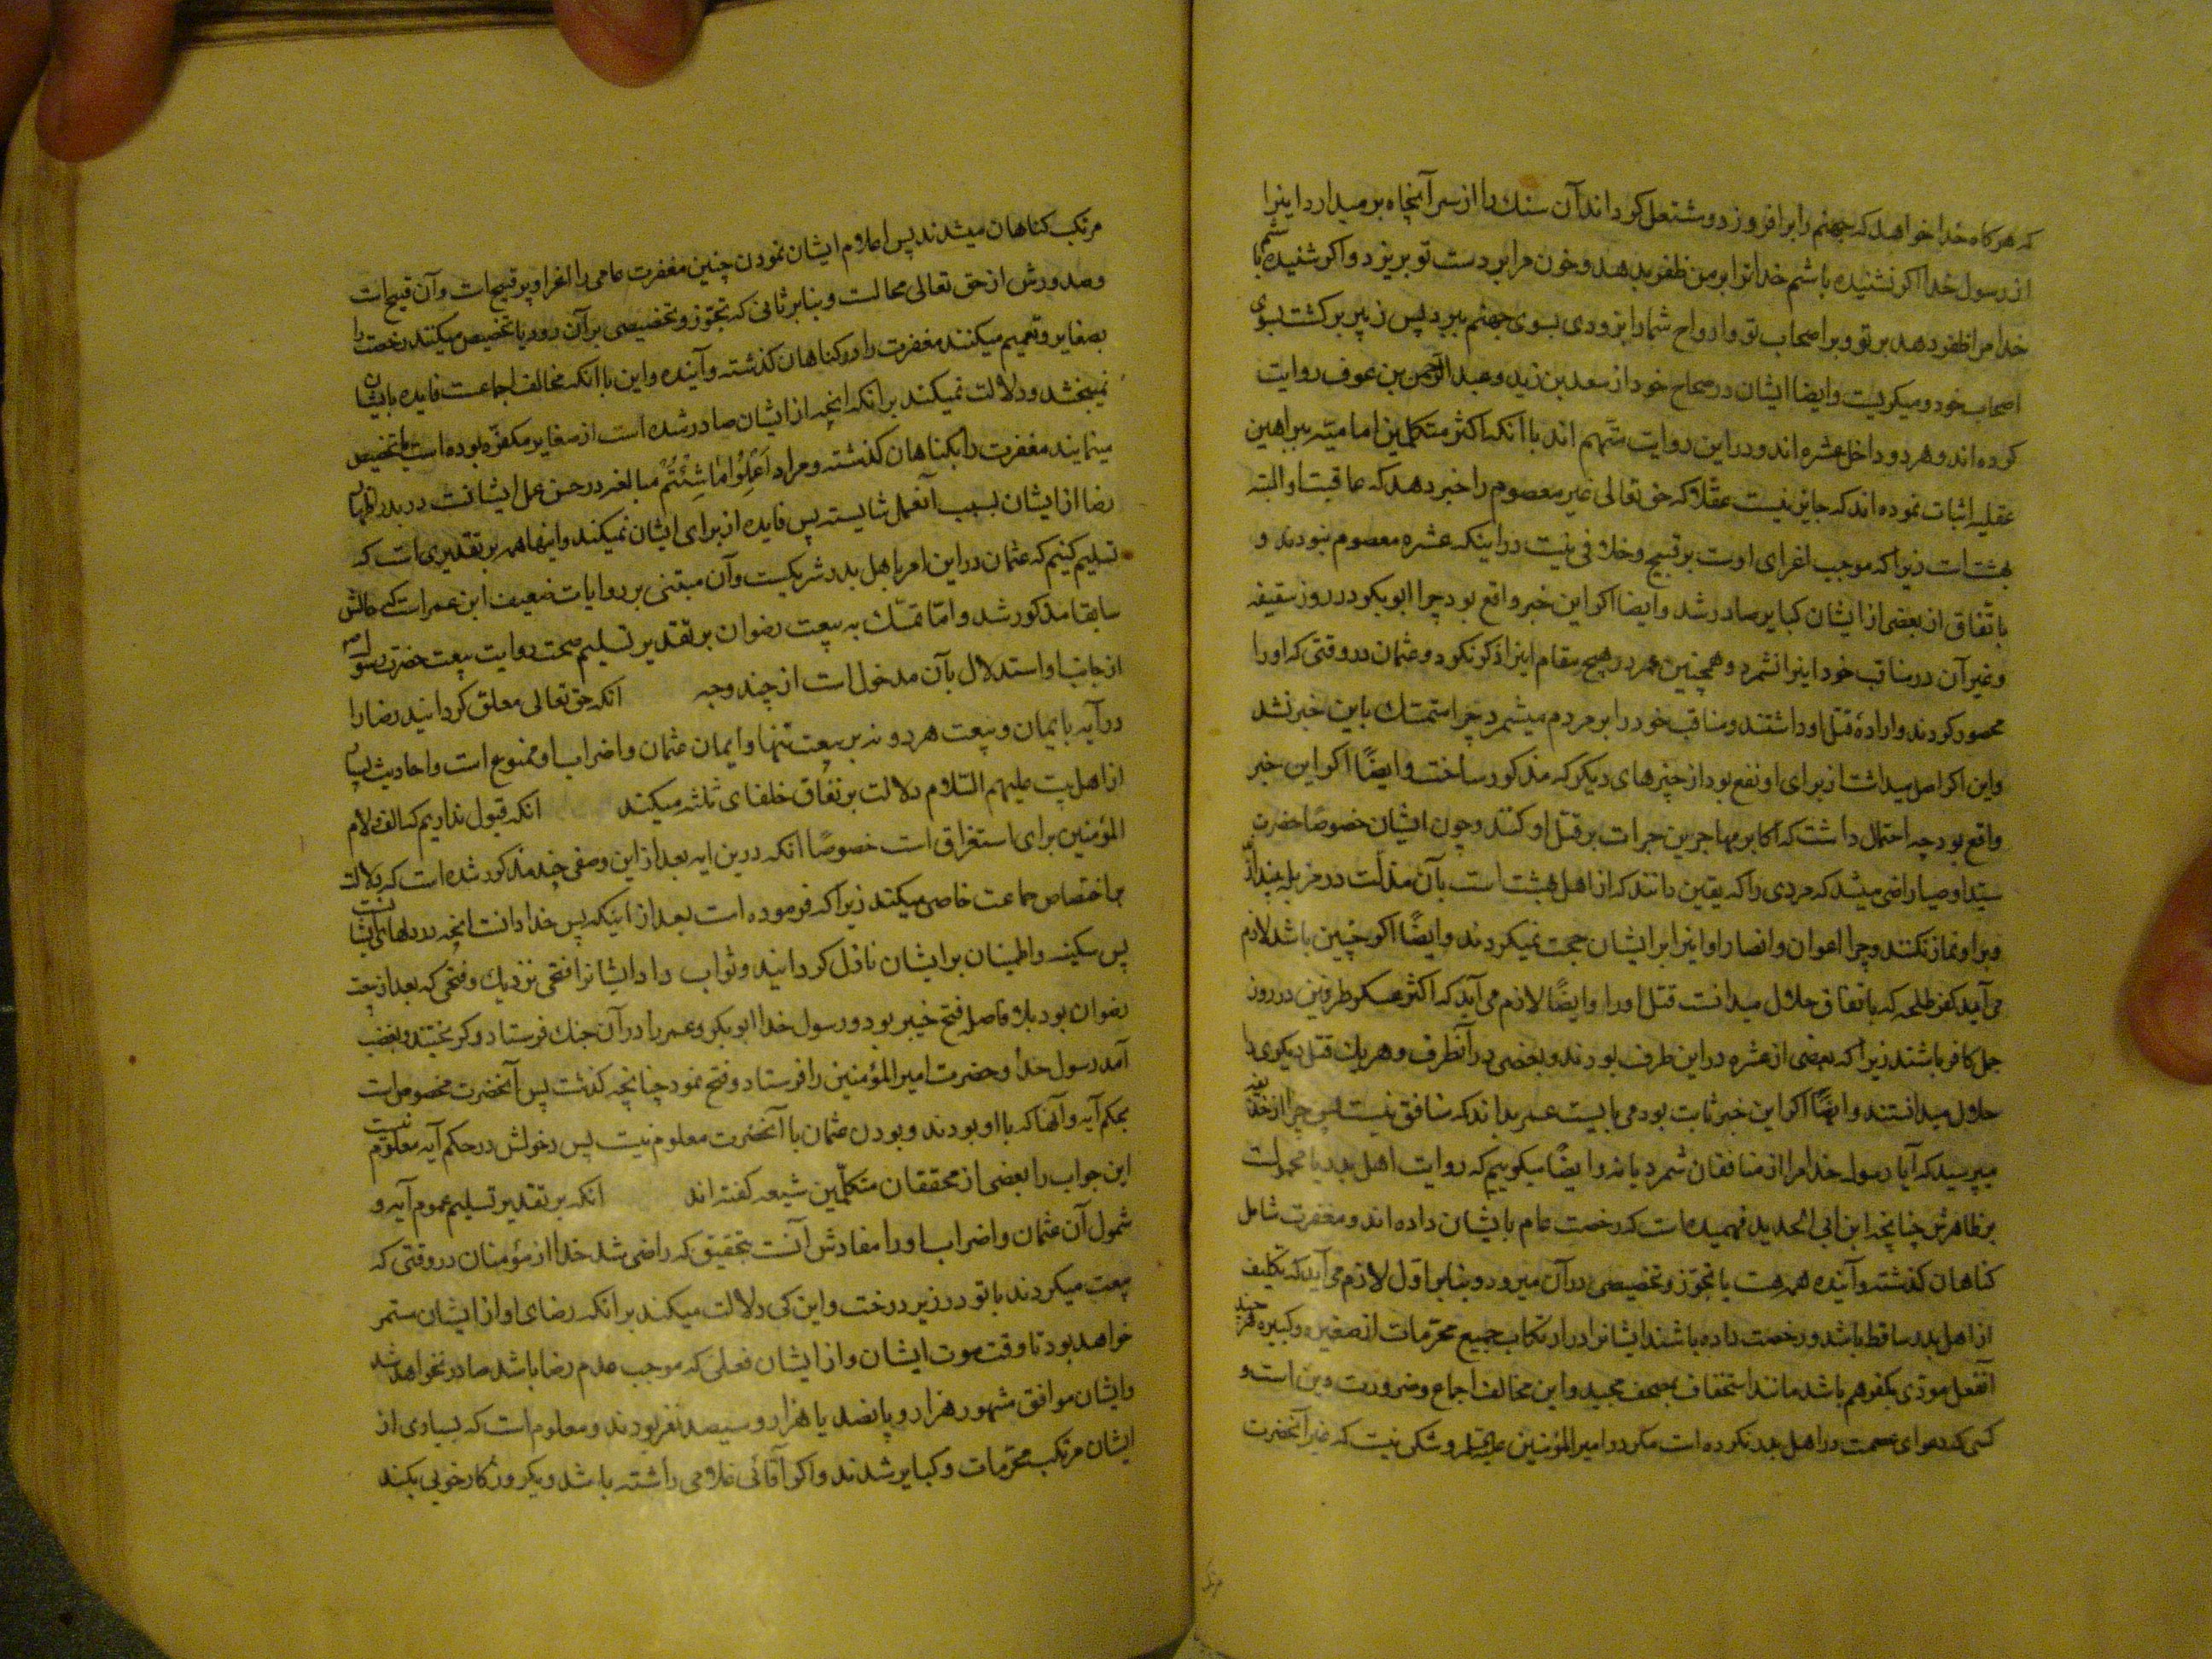 که هرکاه خدا خواهد که جهنم را برافروزد و مشتعل کرداند آن سنك را از سر آنچاه برمیدارد اینرا
از رسول خدا اکر نشنیده باشم خدا ترا بر من ظفر بدهد و خون مرا بر دست تو بریزد و اکر شنیده باشم
خدا مرا ظفر دهد بر تو و بر اصحاب تو و ارواح شما را بزودی بسوی جهنم ببرد پس زبیر برکشت بسوی
اصحاب خود و میکریست و ایضا ایشان در صحاح خود از سعد بن زید و عبد الرحمن بن عوف روایت
کرده اند و هر دو داخل عشره اند و در این روایت متهم اند با آنکه اکثر متکلمین امامیه ببراهین
عقلیه اثبات نموده اند که جایز نیست عقلا که حق تعالی غیر معصوم را خبر دهد که عاقبت او البته
بهشت است زیرا که موجب اغرای اوست بر قبیح و خلافی نیست در اینکه عشره معصوم نبودند و
باتفاق از بعضی از ایشان کبایر صادر شد و ایضا اکر این خبر واقع بود چرا ابو بکر در روز سقیفه
و غیر آن در مناقب خود اینرا نشمرد و همچنین عمر در هیچ مقام اینرا ذکر نکرد و عثمان در وقتی که او را
محصور کردند و ارادهٔ قتل او داشتند و مناقب خود را بر مردم میشمرد چرا متمسك باین خبر نشد
و این اکر اصل میداشت از برای او نفع بود از چیزهای دیکر که مذکور ساخت و ایضًا اکر این خبر
واقع بود چه احتمال داشت که اکابر مهاجرین جرات بر قتل او کنند و چون ایشان خصوصًا حضرت
سید اوصیا راضی میشد که مردی را که یقین دانند که از اهل بهشت است بآن مذلت در مزبله بیندازند
و بر او نماز نکنند و چرا اعوان و انصار او اینرا بر ایشان حجت نمیکردند و ایضًا اکر چنین باشد لازم
می آید کفر طلحه که باتفاق حلال میدانست قتل او را و ایضًا لازم می آید که اکثر عسکر طرفین در روز
جمل کافر باشند زیرا که بعضی از عشره در این طرف بودند و بعضی در آنطرف و هریك قتل دیکری را
حلال میدانستند و ایضًا اکر این خبر ثابت بود می بایست عمر بداند که منافق نیست پس چرا از حذیفه
میپرسید که آیا رسول خدا مرا از منافقان شمرد یا نه و ایضًا میکوییم که روایت اهل بدر یا محمولست
بر ظاهرش چنانچه ابن ابی الحدید فهمیده است که رخصت عام بایشان داده اند و مغفرت شامل
کناهان کذشته و آینده همه هست یا تجوز و تخصیصی در آن میرود و بنابر اول لازم می آید که تکلیف
از اهل بدر ساقط باشد و رخصت داده باشند ایشانرا در ارتکاب جمیع محرمات از صغیره و کبیره هرچند
آنفعل مودی بکفر هم باشد مانند استخفاف بمصحف مجید و این مخالف اجماع و ضرورت دین است و
کسی که دعوای عصمت در اهل بدر نکرده است مکر در امیر المؤمنین علیه السلام و شکی نیست که غیر آنحضرت
مرتکب کناهان میشدند پس اعلام ایشان نمودن چنین مغفرت عامی را اغرا بر قبیح است و آن قبیح است
و صدورش از حق تعالی محالست و بنابر ثانی که تجوّز و تخصیصی بر آن رود یا تخصیص میکنند رخصت را
بصغایر و تعمیم میکنند مغفرت را در کناهان کذشته و آینده و این با آنکه مخالف اجماعست فایده بایشان
نمیبخشد و دلالت نمیکند بر انکه انچه از ایشان صادر شده است از صغایر مکفّره بوده است یا تخصیص
مینمایند مغفرت را بکناهان کذشته و مراد اِعْمَلُوا مَاشِئْتُمْ مبالغه در حسن عمل ایشانست در بدر و اظهار
رضا از ایشان بسبب آنعمل شایسته پس فایده از برای ایشان نمیکند و اینها همه بر تقدیری است که
تسلیم کنیم که عثمان در این امر با اهل بدر شریکست و آن مبتنی بر روایات ضعیف ابن عمر است که حالش
سابقا مذکور شد و امّا تمسّك به بیعت رضوان بر تقدیر تسلیم صحت روایت بیعت حضرت رسول
از جانب او استدلال بآن مدخول است از چند وجه    انکه حق تعالی معلق کردانید رضا را
در آیه بایمان و بیعت هر دو نه بر بیعت تنها و ایمان عثمان و اضراب او ممنوع است و احادیث بسیار
از اهل بیت علیهم السّلام دلالت بر نفاق خلفای ثلثه میکند    انکه قبول نداریم که الف و لام
المؤمنین برای استغراق است خصوصًا انکه درین ایه بعد از این وصفی چند مذکور شده است که دلالت
بر اختصاص جماعت خاصی میکند زیرا که فرموده است بعد از اینکه پس خدا دانست انچه در دلهای ایشانست
پس سکینه و اطمینان بر ایشان نازل کردانید و ثواب داد ایشانرا فتحی نزدیك و فتحی که بعد از بیعت
رضوان بود بلا فاصله فتح خیبر بود و رسول خدا ابو بکر و عمر را در آن جنك فرستاد و کریختند و بغضب
آمد رسول خدا و حضرت امیر المؤمنین را فرستاد و فتح نمود چنانچه کذشت پس آنحضرت مخصوص است
بحکم آیه و آنها که با او بودند و بودن عثمان با آنحضرت معلوم نیست پس دخولش در حکم آیه معلوم نیست
این جواب را بعضی از محققان متکلّمین شیعه کفته اند    انکه بر تقدیر تسلیم عموم آیه و
شمول آن عثمان و اضراب او را مفادش آنست بتحقیق که راضی شد خدا از مؤمنان در وقتی که
بیعت میکردند با تو در زیر درخت و این کی دلالت میکند بر انکه رضای او از ایشان مستمر
خواهد بود تا وقت موت ایشان و از ایشان فعلی که موجب عدم رضا باشد صادر نخواهد شد
و ایشان موافق مشهور هزار و پانصد یا هزار و سیصد نفر بودند و معلوم است که بسیاری از
ایشان مرتکب محرّمات و کبایر شدند و اکر آقائی غلامی داشته باشد و یکروز کار خوبی بکند